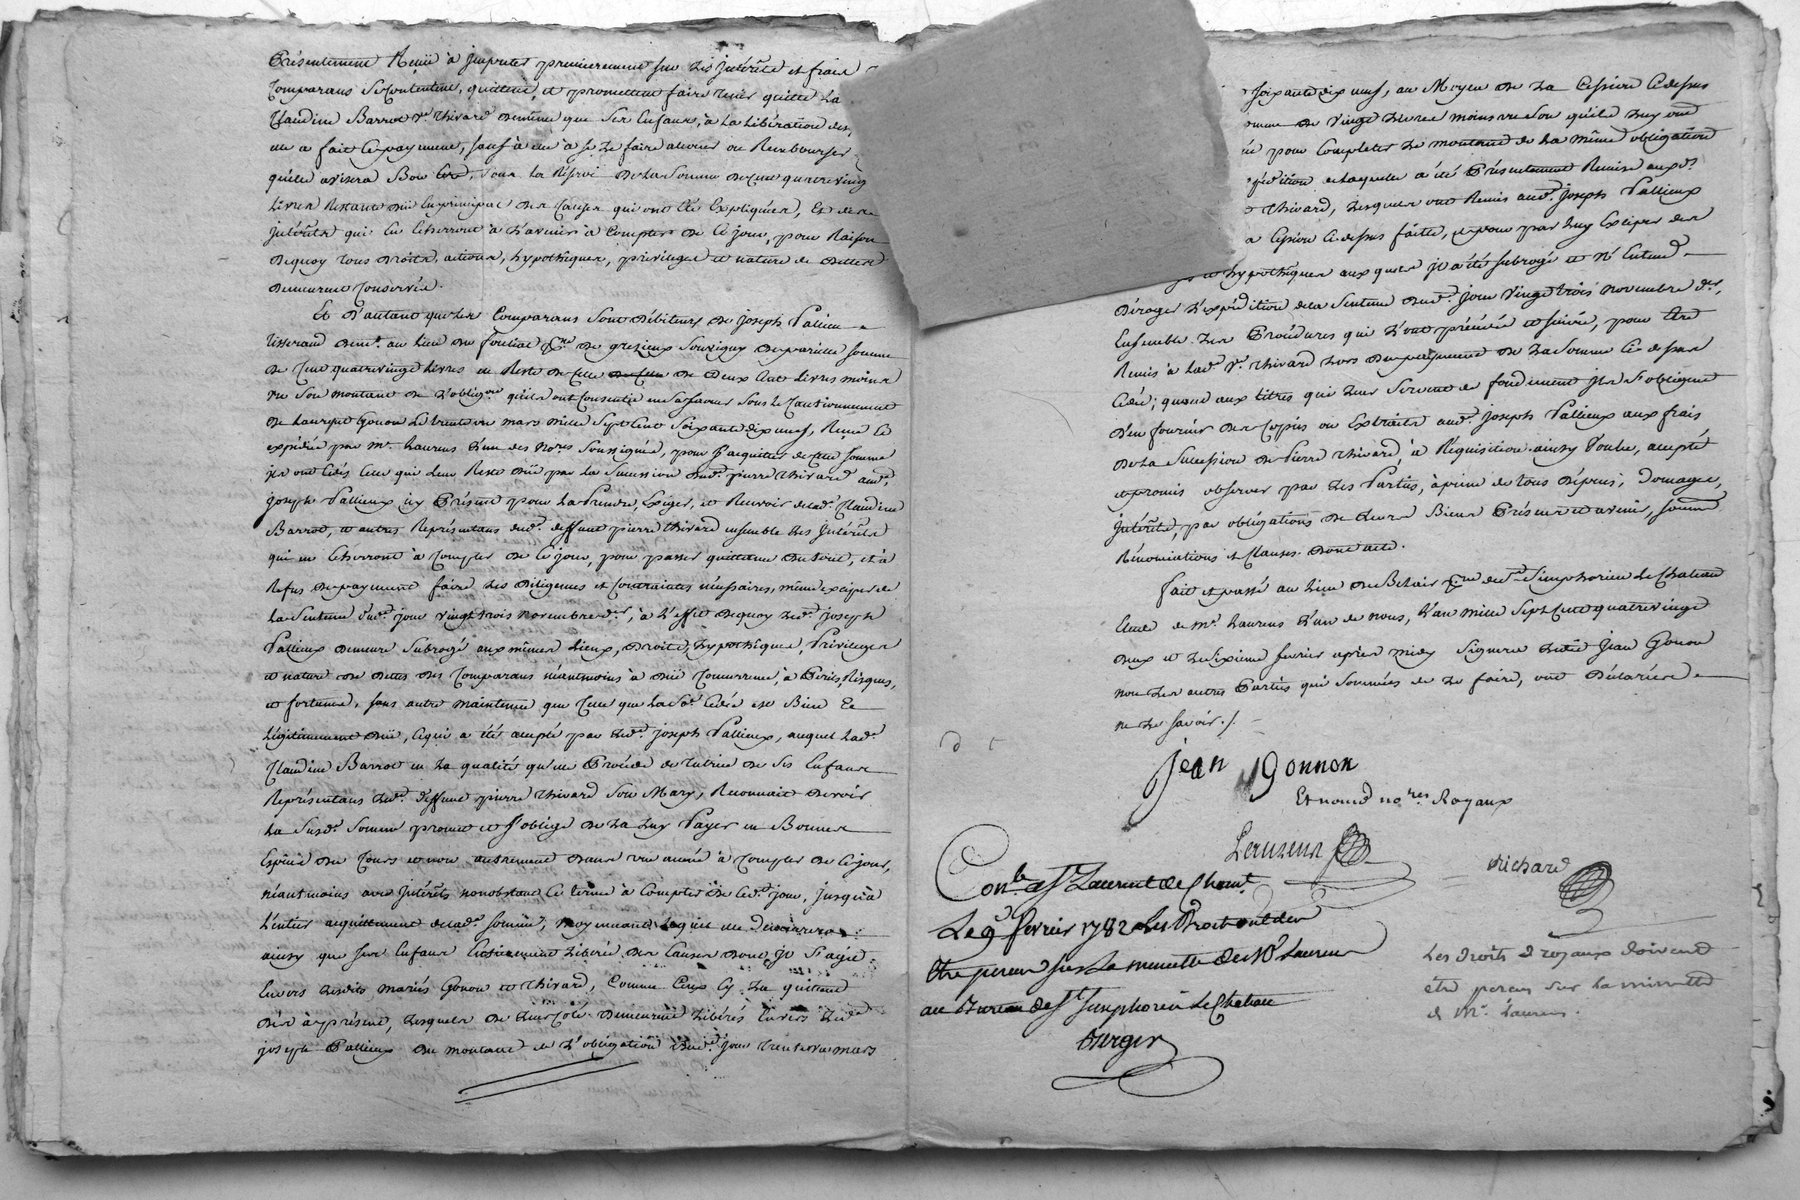 Présentement Reçüe à imputer premierement sur les intérêts et frais
Comparans se contentent, quittent, et promettent faire tenir quitte la
Claudine Barrot ve Thivard de même que ses Enfans, à la libération des
elle a fait ce payement, sauf à elle à se le faire allouer ou Rembourser
qu'elle avisera Bon être, sous la Réserve de la somme de Cent quatrevingt
Livres Restante düe en principal des Causes qui ont été Expliquées, Et des
intérêts qui en Echerront à l'avenir à compter de ce jour, pour Raison
de quoy tous droits, actions, hypothêques, privileges et nature de dettes
demeurent Conservés.
Et d'autant que les Comparans sont débiteurs de joseph Pallieux
tisserand demt. au lieu du fouliat psse. de grezieux Souvigny de pareille somme
de Cent quatrevingt Livres en Reste de celle de Celle de Deux Cent Livres moins
un Sou montant de l'obligon qu'ils ont Consentie en sa faveur sous le Cautionnement
de Laurent Gonon le trente un mars mille Sept Cent soixante dix neuf, Reçue Et
expédiée par Mr. Laurens l'un des Nores soussignés, pour s'acquitter de cette somme
ils ont cédés celle qui leur Reste düe par la succession dudt. pierre Thivard audt.
joseph Pallieux icy Présent pour la Prendre, Exiger, et Recevoir de lade. Claudine
Barrot, et autres Représentans dudt. deffunt pierre Thivard ensemble les Intérêts
qui en Echerront à compter de ce jour, pour passer quittance du tout, et à
Refus de payement faire les diligences et Contraintes nécessaires, même exciper de
la Sentence dudt. jour vingt trois novembre der., à l'effet de quoy ledt. joseph
Pallieux demeure Subrogé aux mêmes Lieux, droits, hypothêques, Privileges
et nature de dettes des Comparans néantmoins à düe Concurrence, à Périls, Risques,
et fortune, sans autre maintenue que celle que lade. Cédée est Bien Et
Légitimement düe, ce qui a été accepté par ledt. joseph Pallieux, auquel lade.
Claudine Barrot en la qualité qu'elle Procède de tutrice de ses Enfans
Représentans ledt. deffunt pierre Thivard son Mary, Reconnait devoir
la Susde. somme promet et s'oblige de la luy Payer en Bonnes
Espèces du cours et non autrement dans une année à compter de ce jour,
néantmoins avec intérêts nonobstant ce terme à compter de cedt. jour, jusqu'à
l'entier acquittement de lade. somme, moyennant lequel elle demeurera
ainsy que ses Enfans Entierement Libérée des causes dont il s'agit
Envers lesdits mariés Gonon et Thivard, Comme Ceux cy la quittent
dès à présent, lesquels de leur côté demeurent Libérés Envers ledt.
joseph Pallieux du montant de l'obligation dudt. jour trente un mars
soixante dix neuf, au Moyen de la Cession Cy dessus
somme de vingt livres moins un Sou qu'ils luy ont
pour completer le montant de la même obligation
expédition de laquelle a été Présentement Remise auxdts.
Thivard, lesquels ont Remis audt. joseph Pallieux
a Cession Cy dessus faitte, et pour par luy Exciper des
et hypothêques auxquels il a été subrogé et N'Entend
déroger l'expédition de la Sentence dudt. jour vingt trois novembre der.,
Ensemble les Procédures qui l'ont précédée et suivie, pour être
Remis à lade. ve. Thivard lors du payement de la Somme Cy dessus
Cédée; quand aux titres qui leur servent de fondement ils s'obligent
d'en fournir des Copies ou Extraits audt. joseph Pallieux aux frais
de la Succession de Pierre Thivard, à Réquisition ainsy Voulu, accepté
et promis observer par les Parties, à peine de tous dépens, domages,
intérêts, par obligations de leurs Biens Présens et avenir, soum.
Rénonciations et Clauses dont acte.
fait et passé au lieu de Belair psse. de St. Simphorien le Chateau
Etude de Mr. Laurens l'un de nous, l'an mille Sept Cent quatrevingt
deux et le sixieme fevrier après midy signera ledit Jean Gonon
non les autres Parties qui sommées de le faire, ont déclarées
ne le savoir./.
jean Gonnon
Et nous nores Royaux
Laurens
Richard
Conle. a St. Laurent de Chamt.
Le 9 fevrier 1782 Les Droits doivent
être percus sur La minutte de Mr Laurens
au Bureau de St Simphorien le Chateau
Verger
Les droits Royaux doivent
être percus sur la minutte
de Mr. Laurens.